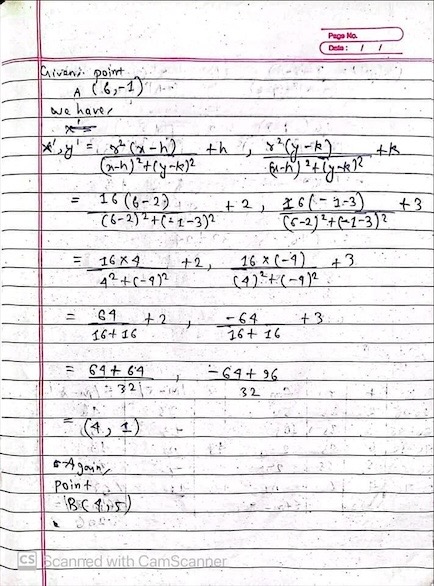 Page No.
Date: / /
Given: point
A (6,-1)
we have,
x', y' = r²(x-h) / (x-h)²+(y-k)² + h , r²(y-k) / (x-h)²+(y-k)² + k
= 16(6-2) / (6-2)²+(-1-3)² + 2 , 16(-1-3) / (6-2)²+(-1-3)² + 3
= 16×4 / 4²+(-4)² + 2, 16×(-4) / (4)²+(-4)² + 3
= 64 / 16+16 + 2 , -64 / 16+16 + 3
= 64+64 / 32 , -64+96 / 32
= (4, 1)
Again,
point
B(4,5)
CS Scanned with CamScanner